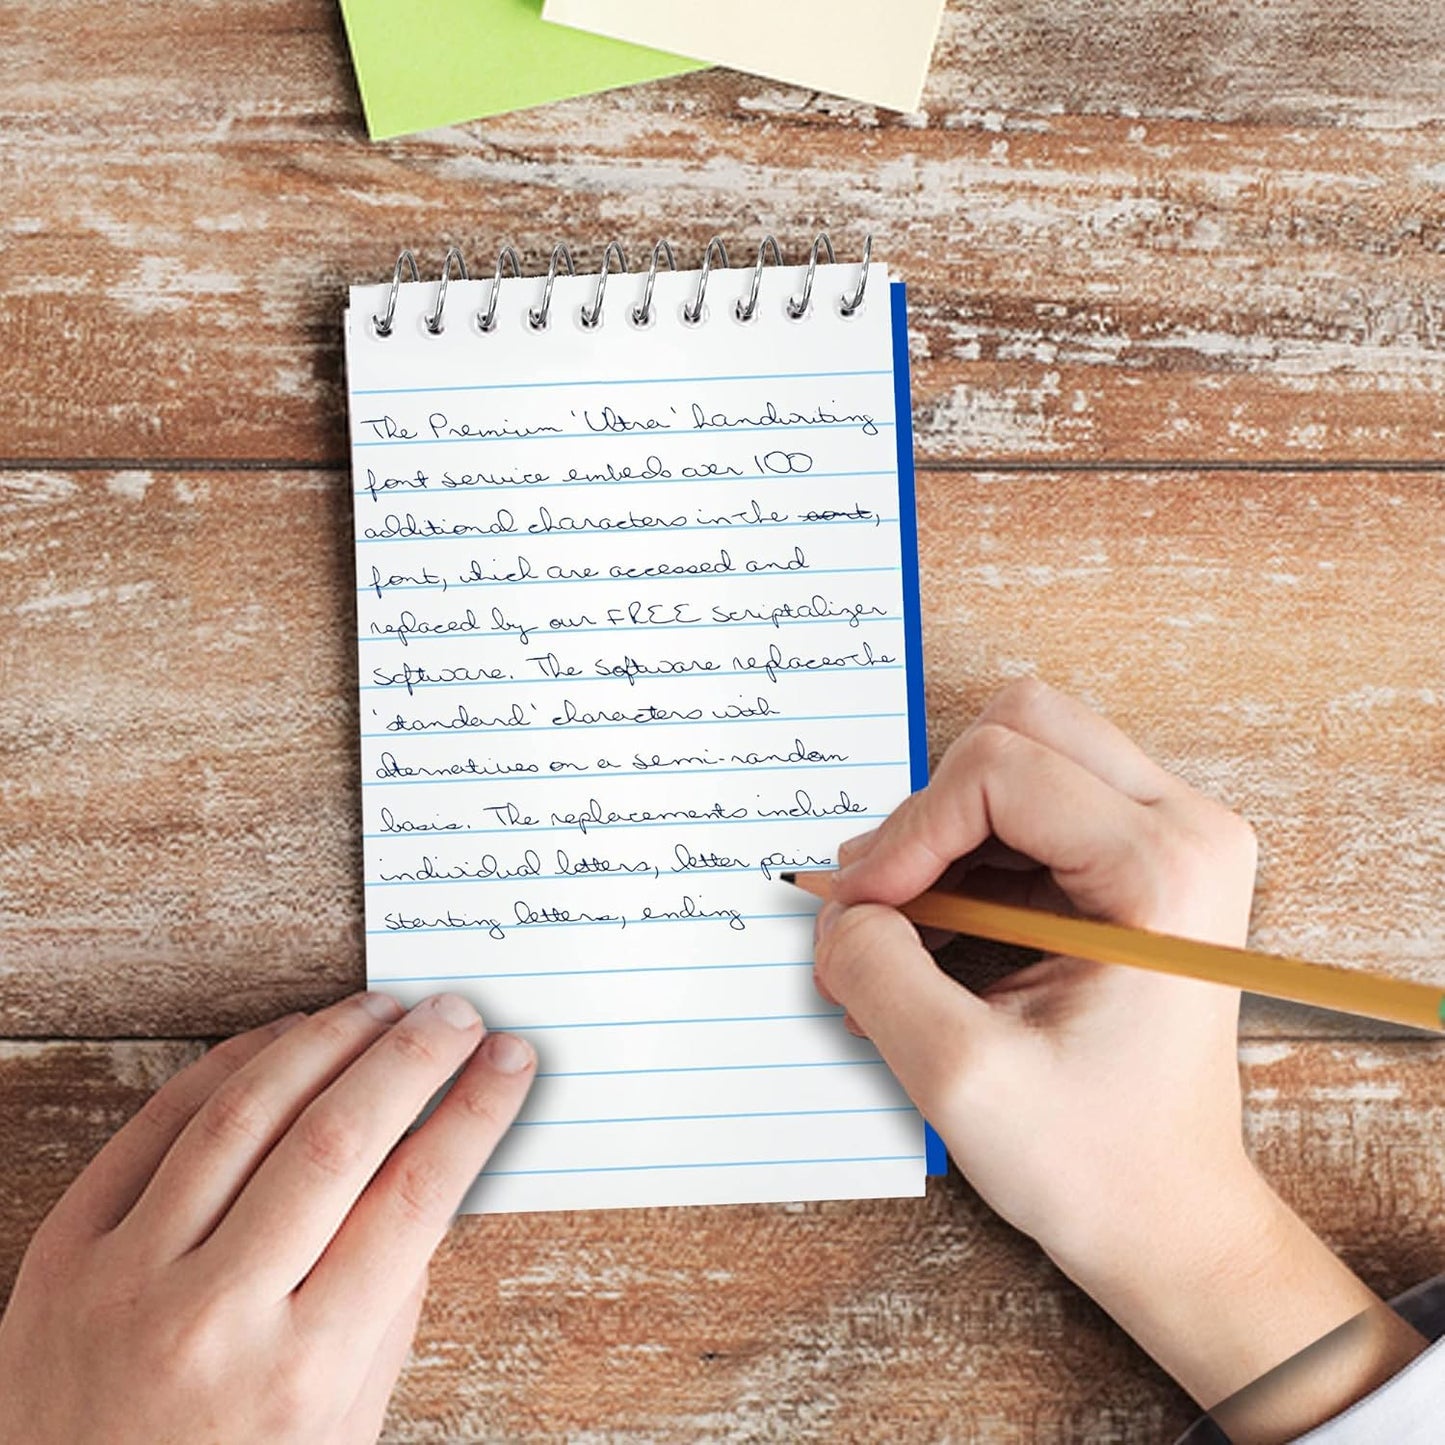 The Premium 'Ultra' handwriting
font service embeds over 100
additional characters in the font,
font, which are accessed and
replaced by our FREE Scriptalizer
Software. The software replaces the
'standard' characters with
alternatives on a semi-random
basis. The replacements include
individual letters, letter pairs
starting letters, ending